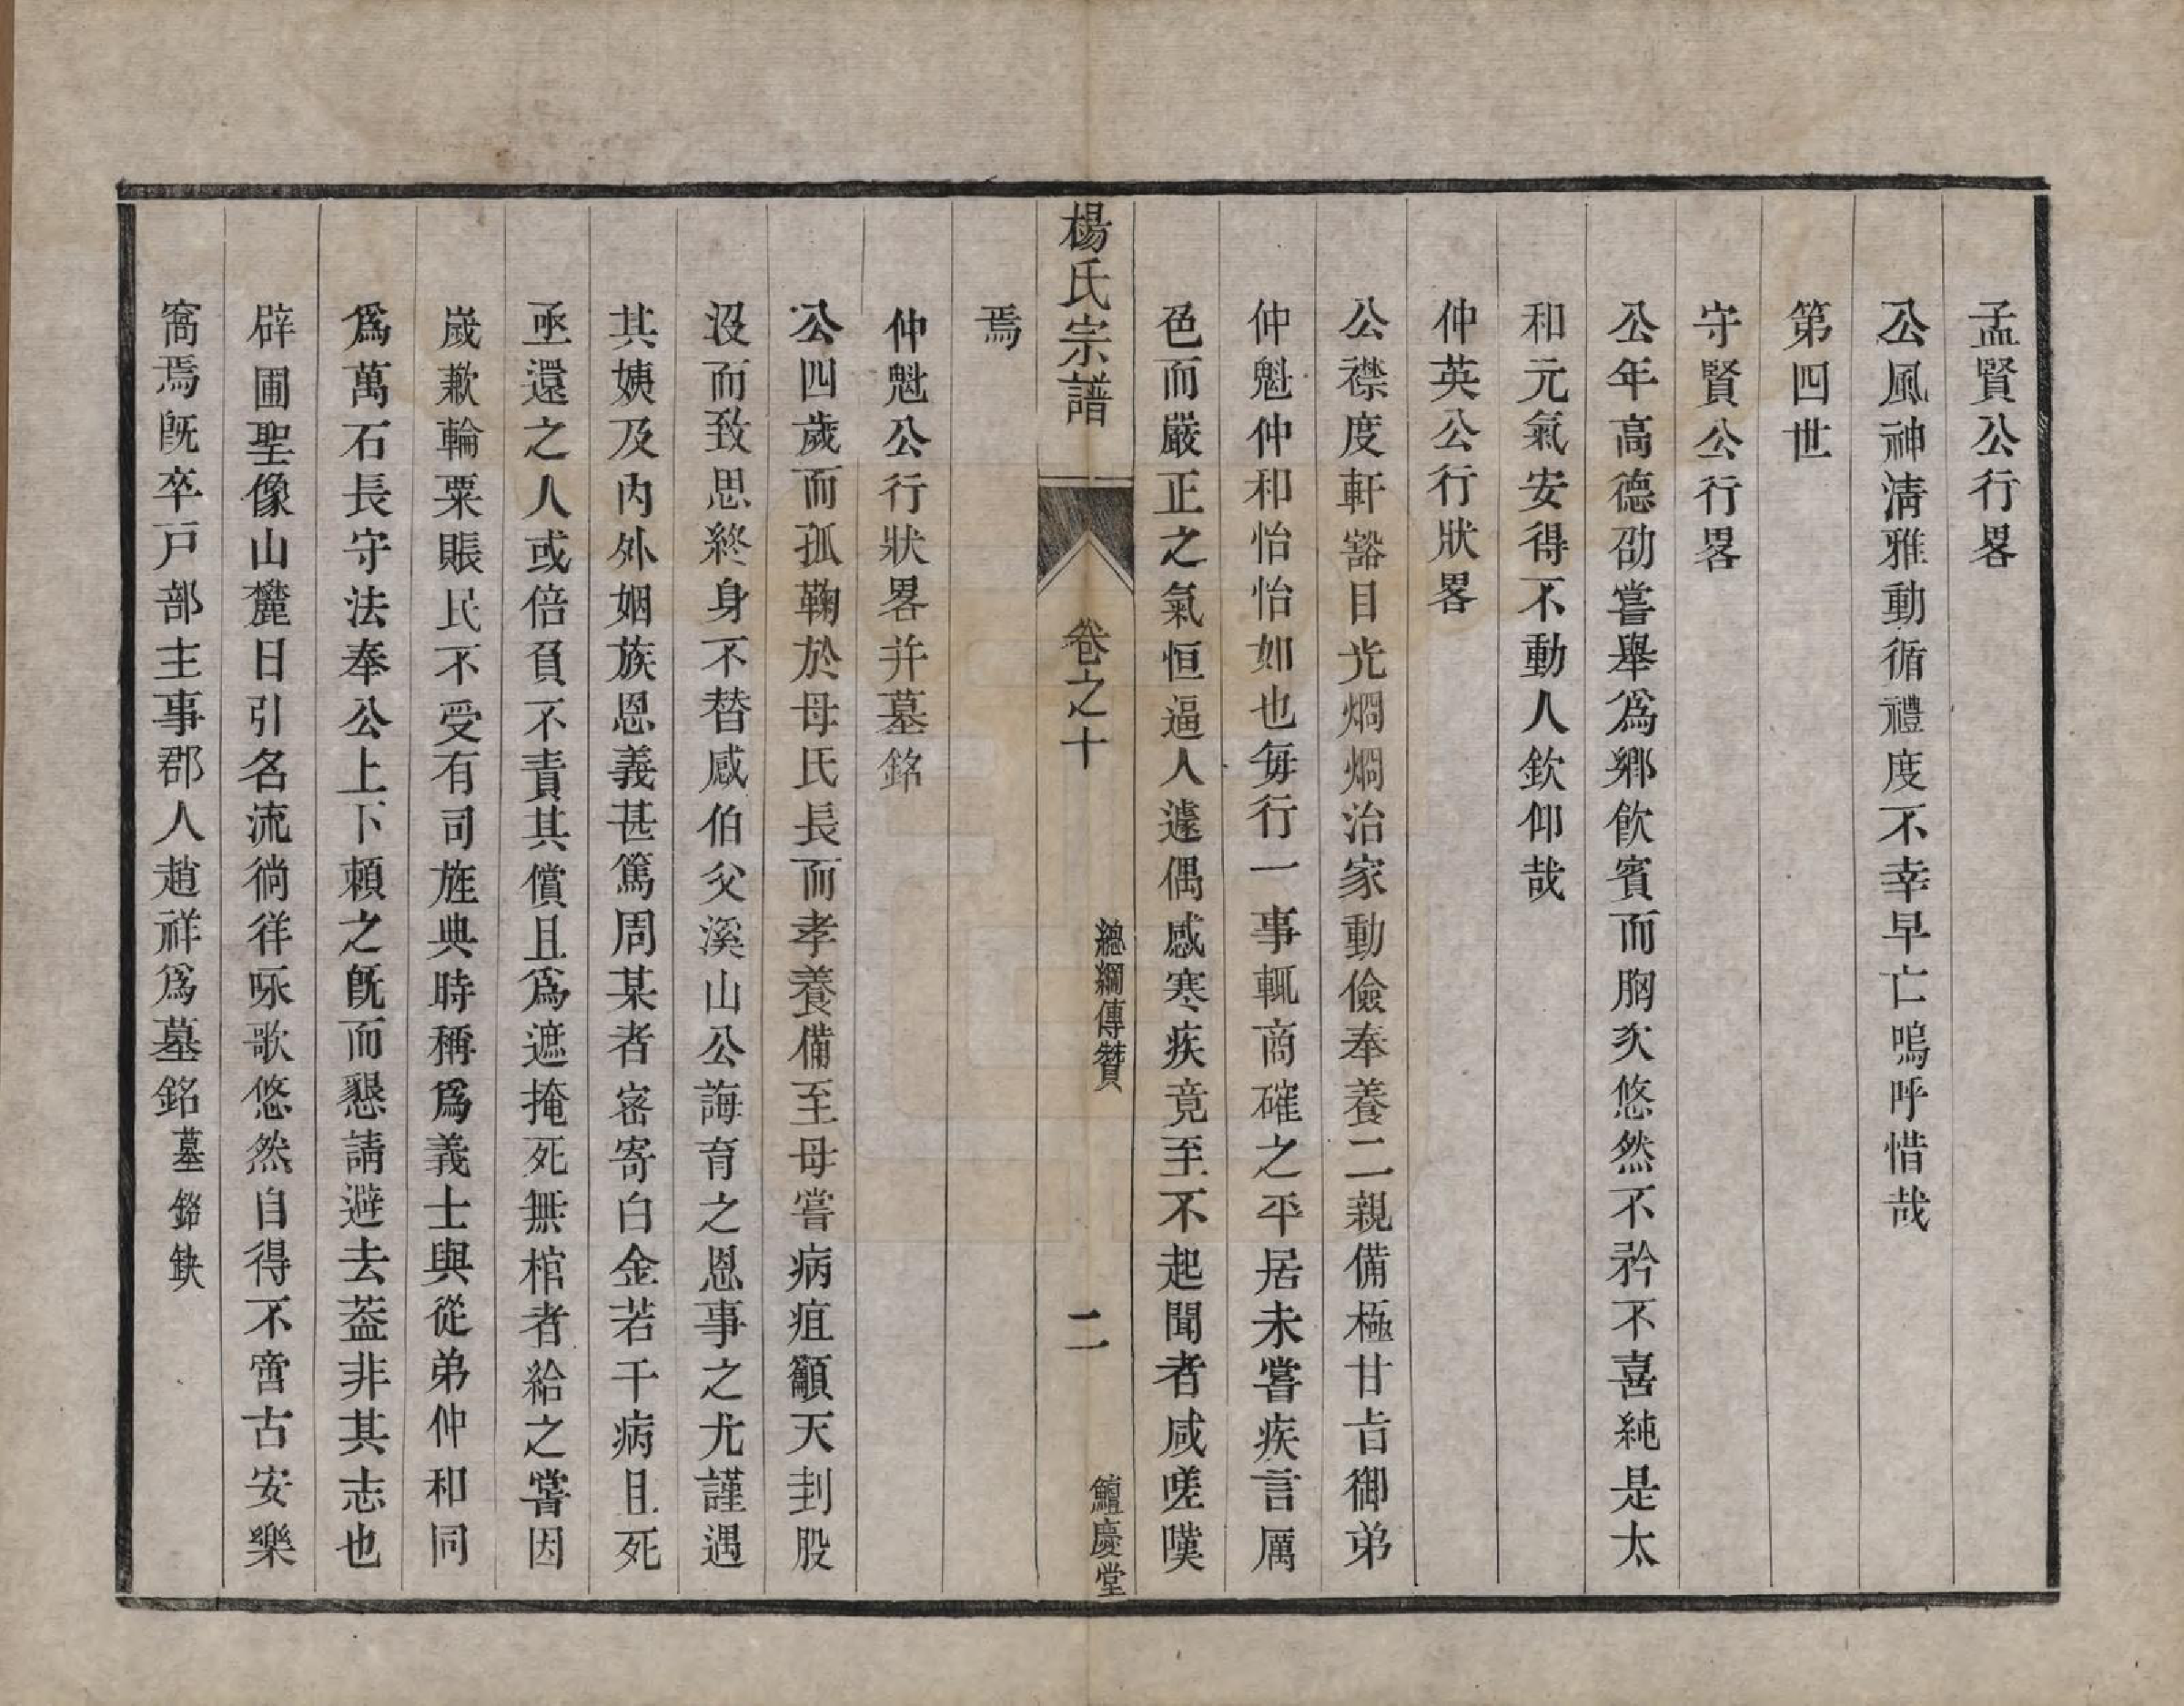 孟賢公行畧
公風神淸雅動循禮度不幸早亡嗚呼惜哉
第四世
守賢公行畧
公年高德劭嘗舉爲鄕飮賓而胸次悠然不矜不喜純是太
和元氣安得不動人欽仰哉
仲英公行狀畧
公襟度軒豁目光烱烱治家動儉奉養二親備極甘旨御弟
仲魁仲和怡怡如也每行一事輒商確之平居未嘗疾言厲
色而嚴正之氣恒逼人遽偶感寒疾竟至不起聞者咸嗟嘆
焉
楊氏宗譜
卷之十
總綱傳贊
二
鱣慶堂
仲魁公行狀畧并墓銘
公四歲而孤鞠於母氏長而孝養備至母嘗病疽籲天刲股
沒而致思終身不替感伯父溪山公誨育之恩事之尤謹遇
其姨及內外姻族恩義甚篤周某者密寄白金若干病且死
亟還之人或倍負不責其償且爲遮掩死無棺者給之嘗因
歲歉輸粟賑民不受有司旌典時稱爲義士與從弟仲和同
爲萬石長守法奉公上下賴之旣而懇請避去葢非其志也
辟圃聖像山麓日引名流徜徉咏歌悠然自得不啻古安樂
窩焉旣卒戸部主事郡人趙祥爲墓銘墓銘缺